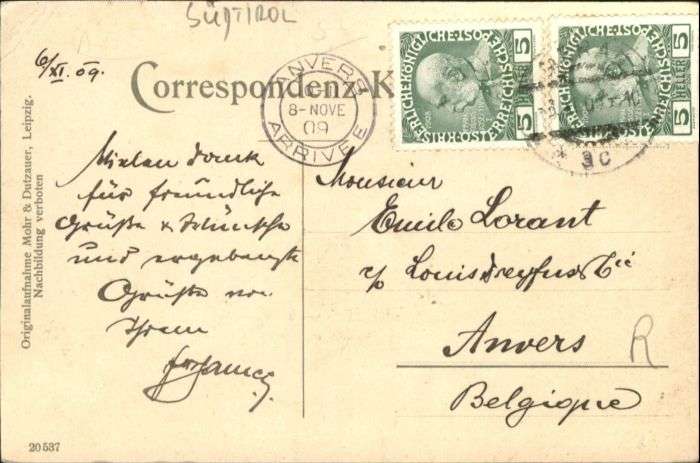 SÜDTIROL
6/XI. 09.
Correspondenz-K
ANVERS
8-NOVE
09
ARRIVÉE
5 HELLER 5
KAISERLICHE KÖNIGLICHE ÖSTERREICHISCHE
5 HELLER 5
3C
Originalaufnahme Mohr & Dutzauer, Leipzig.
Nachbildung verboten
Vielen Dank
für freundliche
Grüße & Wünsche
und ergebenste
Grüße von
Ihrem
Monsieur
Emile Lorant
c/o Louis Dreyfus & Cie
Anvers
R
Belgique
20537